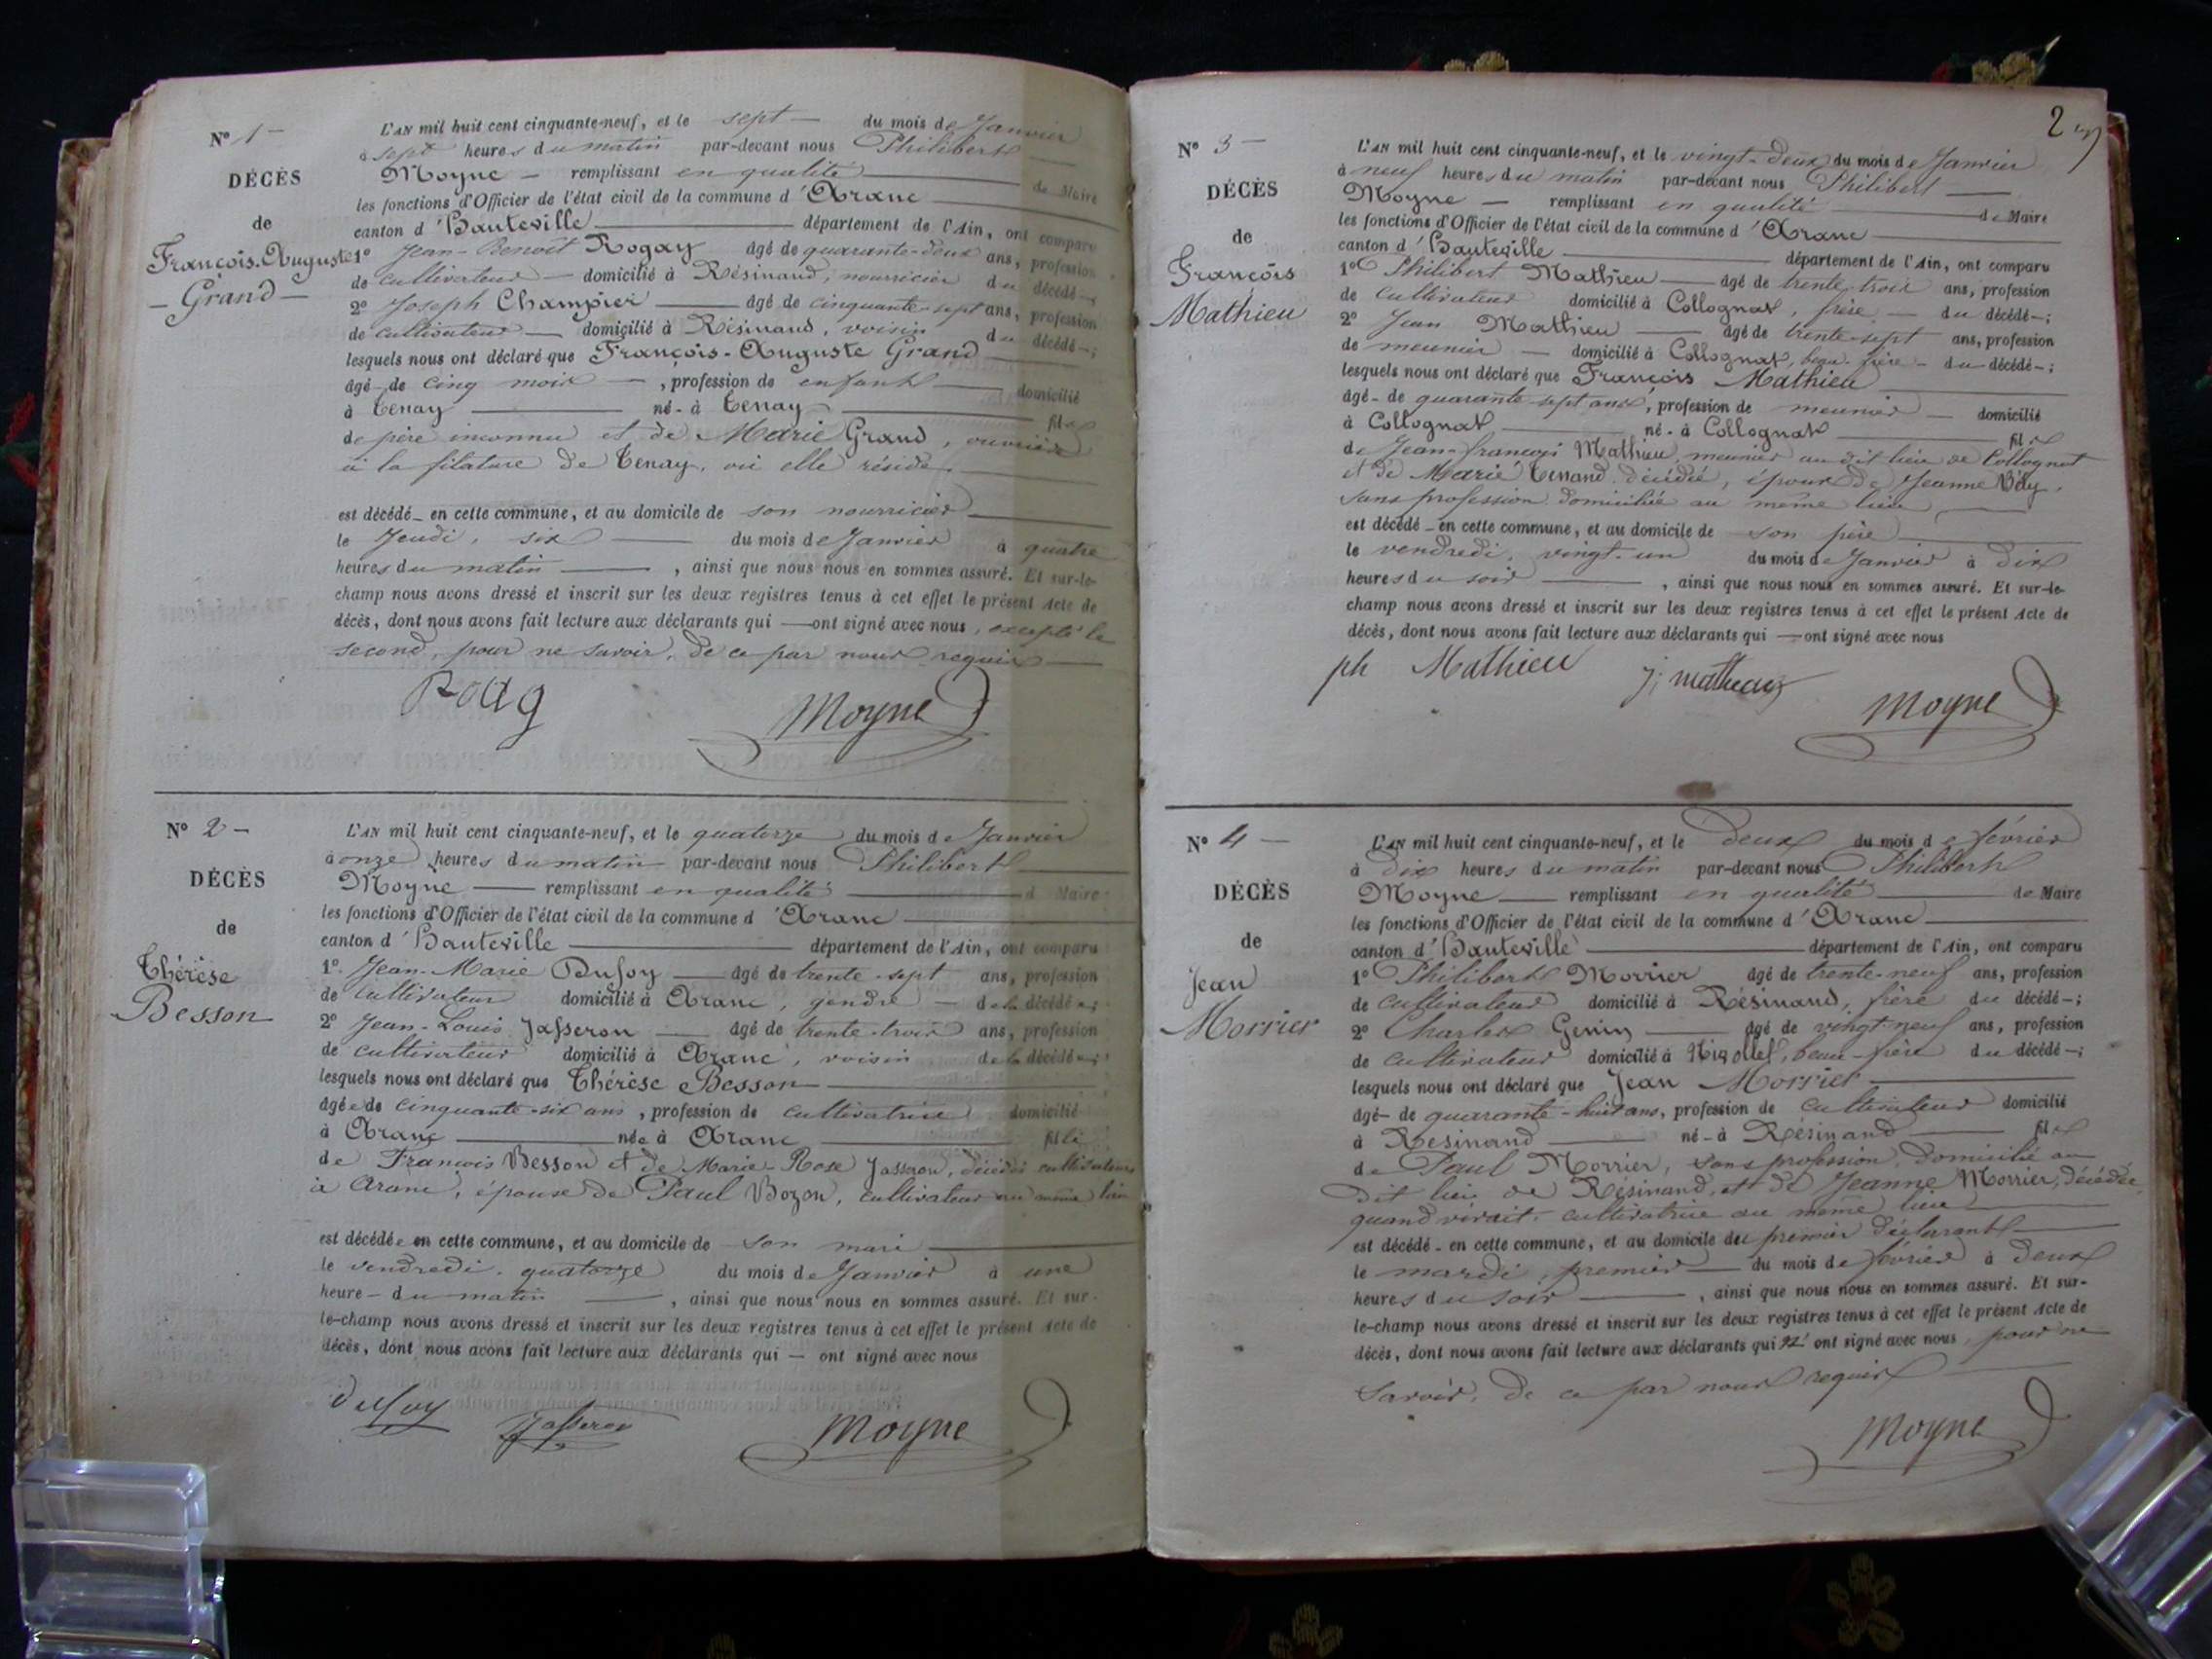 N° 1 —
DÉCÈS
de
François-Auguste
— Grand —
L'AN mil huit cent cinquante-neuf, et le sept — du mois de Janvier
à sept heures du matin par-devant nous Philibert —
Moyne — remplissant en qualité — de Maire
les fonctions d'Officier de l'état civil de la commune d'Aranc —
canton d'Hauteville — département de l'Ain, ont comparu
1° Jean-Benoit Rogay âgé de quarante-deux ans, profession
de cultivateur — domicilié à Résinand, nourricier du décédé —;
2° Joseph Champier — âgé de cinquante-sept ans, profession
de cultivateur — domicilié à Résinand, voisin du décédé —;
lesquels nous ont déclaré que François-Auguste Grand —
âgé — de cinq mois —, profession de enfant — domicilié
à Tenay — né - à Tenay — fils
de père inconnu et de Marie Grand, ouvrière
à la filature de Tenay, où elle réside. —
est décédé — en cette commune, et au domicile de son nourricier —
le Jeudi, six — du mois de Janvier à quatre
heures du matin —, ainsi que nous nous en sommes assuré. Et sur-le-
champ nous avons dressé et inscrit sur les deux registres tenus à cet effet le présent Acte de
décès, dont nous avons fait lecture aux déclarants qui — ont signé avec nous, excepté le
second, pour ne savoir, de ce par nous requis —
Moyne
N° 2 —
DÉCÈS
de
Thérèse
Besson
L'AN mil huit cent cinquante-neuf, et le quatorze du mois de Janvier
à onze heures du matin par-devant nous Philibert —
Moyne — remplissant en qualité — d Maire
les fonctions d'Officier de l'état civil de la commune d'Aranc —
canton d'Hauteville — département de l'Ain, ont comparu
1° Jean-Marie Dufoy — âgé de trente-sept ans, profession
de cultivateur domicilié à Aranc, gendre — de la décédée;
2° Jean-Louis Jasseron — âgé de trente-trois ans, profession
de cultivateur domicilié à Aranc, voisin de la décédée;
lesquels nous ont déclaré que Thérèse Besson —
âgée de cinquante-six ans, profession de cultivatrice domicilié
à Aranc — née à Aranc — fille
de François Besson et de Marie-Rose Jasseron, décédés cultivateurs
à Aranc, épouse de Paul Bozon, cultivateur au même lieu
est décédée en cette commune, et au domicile de son mari —
le vendredi, quatorze du mois de Janvier à une
heure — du matin —, ainsi que nous nous en sommes assuré. Et sur-
le-champ nous avons dressé et inscrit sur les deux registres tenus à cet effet le présent Acte de
décès, dont nous avons fait lecture aux déclarants qui — ont signé avec nous
Jasseron Moyne
2
N° 3 —
DÉCÈS
de
François
Mathieu
L'AN mil huit cent cinquante-neuf, et le vingt-deux du mois de Janvier
à neuf heures du matin par-devant nous Philibert —
Moyne — remplissant en qualité — de Maire
les fonctions d'Officier de l'état civil de la commune d'Aranc —
canton d'Hauteville — département de l'Ain, ont comparu
1° Philibert Mathieu — âgé de trente-trois ans, profession
de cultivateur domicilié à Collognat, frère — du décédé —;
2° Jean Mathieu — âgé de trente-sept ans, profession
de meunier — domicilié à Collognat, beau-frère — du décédé —;
lesquels nous ont déclaré que François Mathieu —
âgé - de quarante-sept ans, profession de meunier — domicilié
à Collognat — né - à Collognat — fils
de Jean-françois Mathieu, meunier au dit lieu de Collognat
et de Marie Tenand décédée, époux de Jeanne Bély,
sans profession domiciliée au même lieu —
est décédé — en cette commune, et au domicile de son père —
le vendredi, vingt-un du mois de Janvier à dix
heures du soir —, ainsi que nous nous en sommes assuré. Et sur-le-
champ nous avons dressé et inscrit sur les deux registres tenus à cet effet le présent Acte de
décès, dont nous avons fait lecture aux déclarants qui — ont signé avec nous
ph Mathieu j; mathieu
Moyne
N° 4 —
DÉCÈS
de
Jean
Morrier
L'AN mil huit cent cinquante-neuf, et le deux du mois de février
à dix heures du matin par-devant nous Philibert
Moyne — remplissant en qualité — de Maire
les fonctions d'Officier de l'état civil de la commune d'Aranc —
canton d'Hauteville — département de l'Ain, ont comparu
1° Philibert Morrier âgé de trente-neuf ans, profession
de cultivateur domicilié à Résinand, frère du décédé —;
2° Charles Genin — âgé de vingt-neuf ans, profession
de cultivateur domicilié à beau-frère du décédé —;
lesquels nous ont déclaré que Jean Morrier —
âgé — de quarante-huit ans, profession de cultivateur domicilié
à Resinand — né - à Résinand — fils
de Paul Morrier, sans profession, domicilié au
dit lieu de Résinand, et de Jeanne Morrier, décédée,
quand vivait cultivatrice au même lieu —
est décédé - en cette commune, et au domicile du premier déclarant —
le mardi, premier — du mois de février à deux
heures du soir —, ainsi que nous nous en sommes assuré. Et sur-
le-champ nous avons dressé et inscrit sur les deux registres tenus à cet effet le présent Acte de
décès, dont nous avons fait lecture aux déclarants qui n' ont signé avec nous, pour ne
savoir, de ce par nous requis —
Moyne